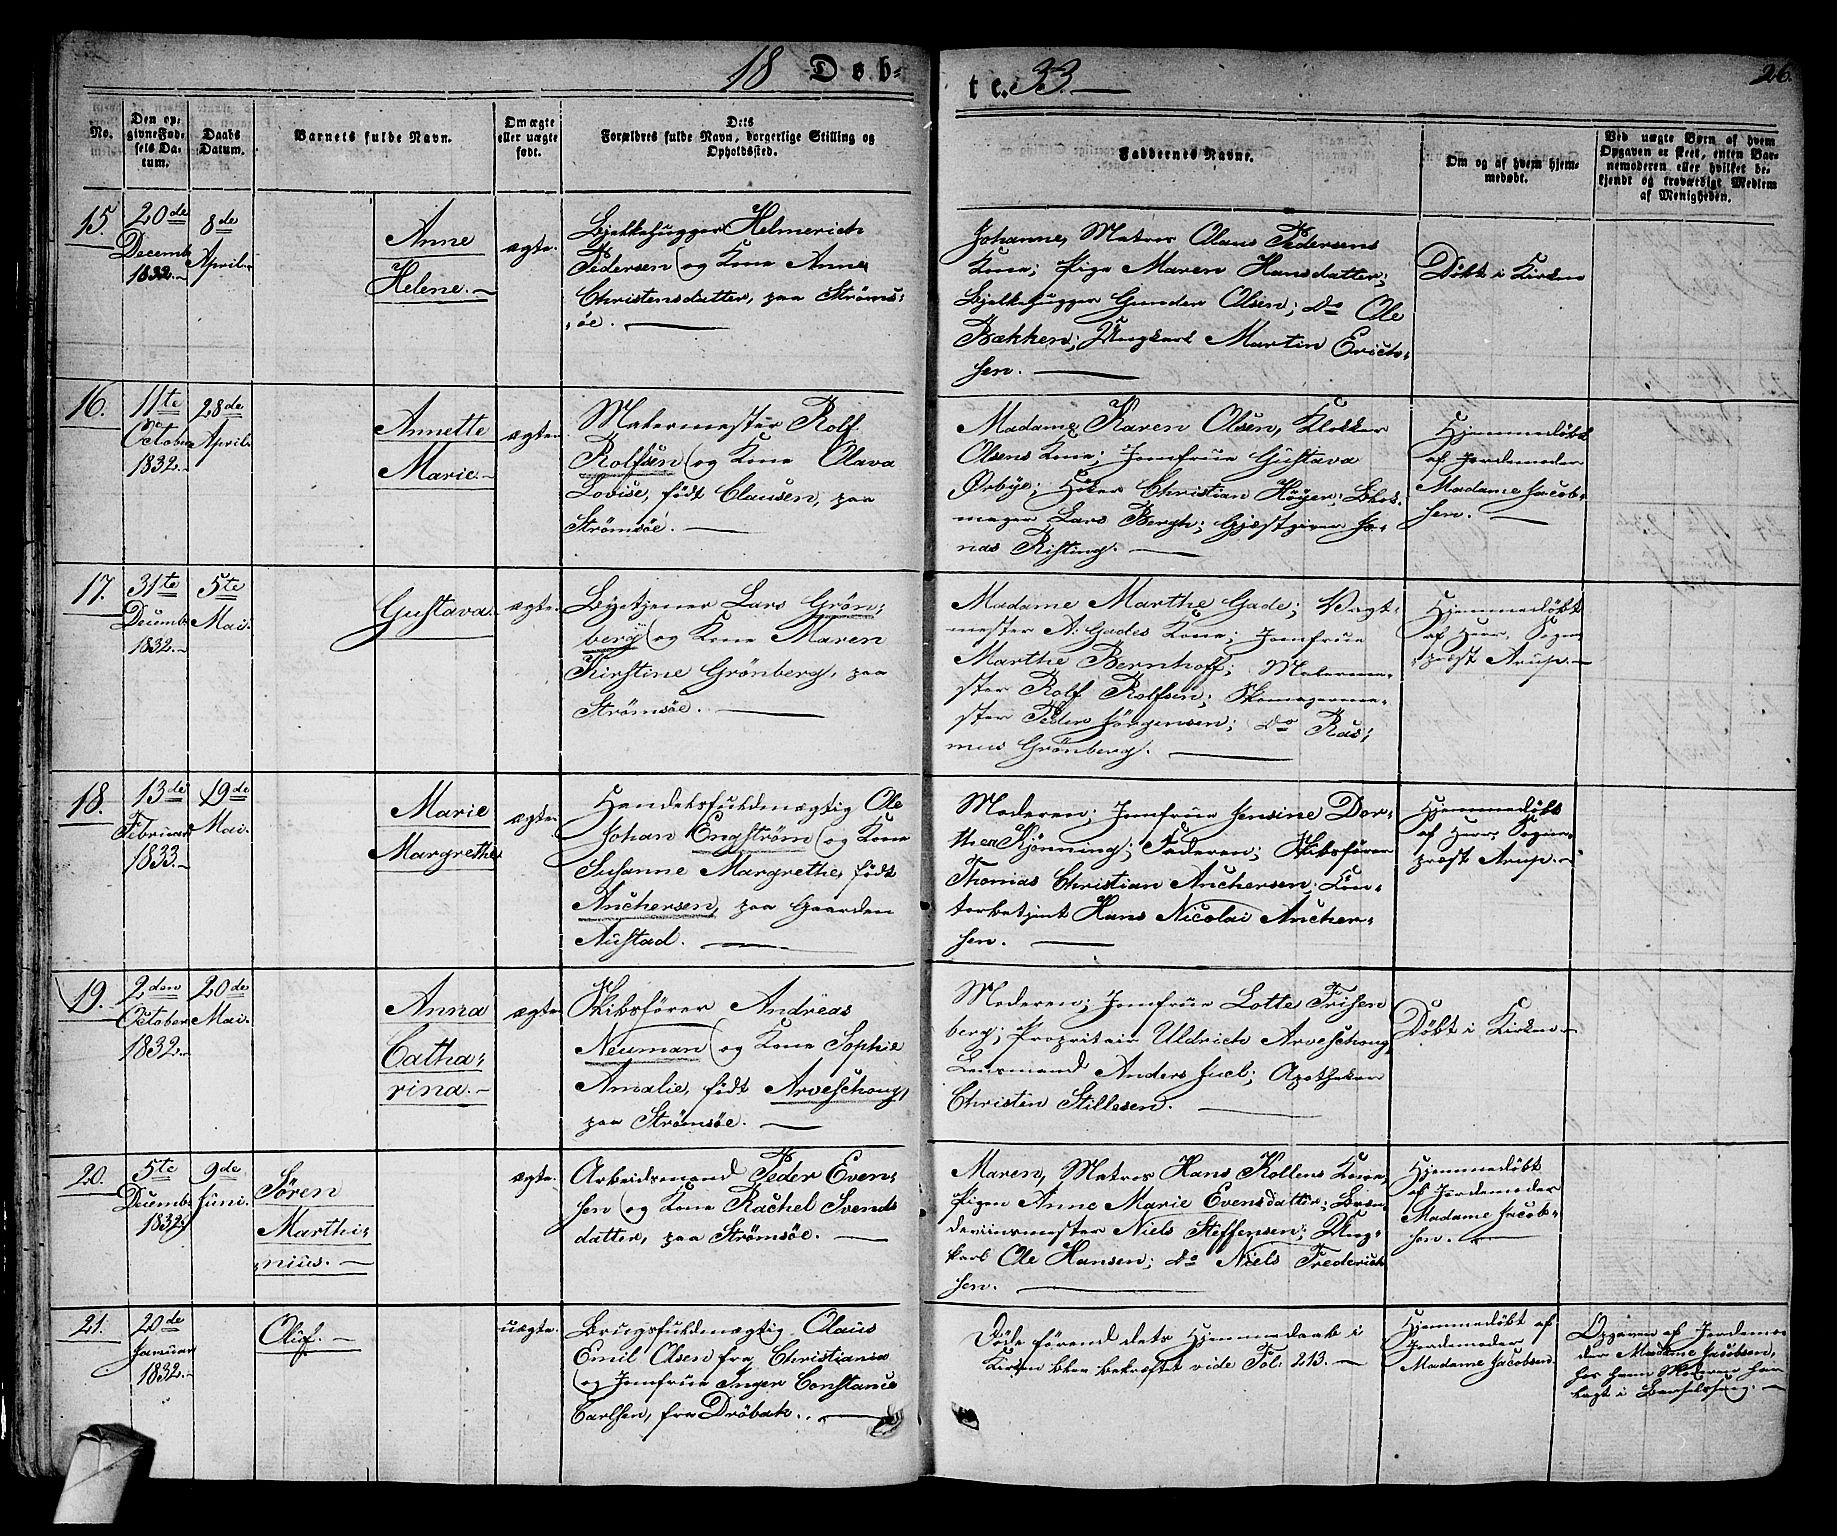 18 Døb-
te. 33.
26.
No.
Den op-
givne Føde-
sels Da-
tum.
Daabs
Datum.
Barnets fulde Navn.
Om ægte
eller uægte
født.
Dets
Forældres fulde Navn, borgerlige Stilling og
Opholdssted.
Faddernes Navne.
Om og af hvem hjem-
medøbt.
Ved uægte Børn af hvem
Opgaven er skeet, enten Bar-
nemoderen eller hvilket be-
kjendt og troværdigt Medlem
af Menigheden.
15.
20de
Decemb.
1832.
8de
April.
Anne
Helene.
ægte.
Bjelkehugger Helmerich
Pedersen og Kone Anne
Christensdatter, paa Strøms-
øe.
Johanne, Matros Olaus Pedersens
Kone; Pige Maren Hansdatter;
Bjelkehugger Gunder Olsen; do Ole
Bækken; Ungkarl Martin Erich-
sen.
Døbt i Kirken
16.
11te
October
1832.
28de
April.
Annette
Marie.
ægte.
Matermester Rolf
Rolfsen og Kone Olava
Lovise, født Clausen, paa
Strømsøe.
Madame Karen Olsen, Klokker
Olsens Kone; Jomfrue Gustava
Ørbye; Høker Christian Höyer; Blok-
mager Lars Bergh; Gjæstgiver Jo-
nas Risting.
Hjemmedøbt
af Jordemoder
Madame Jacob-
sen.
17.
31te
Decemb.
1832.
5te
Mai.
Gustava.
ægte.
Byetjener Lars Grøn-
berg og Kone Maren
Kirstine Grönberg, paa
Strømsøe.
Madame Marthe Gade; Vagt-
mester A: Gades Kone; Jomfrue
Marthe Bernhoff; Materme-
ster Rolf Rolfsen; Skomagerme-
ster Peder Jörgensen; do Ras-
mus Grönberg.
Hjemmedøbt
af Herr Sogne-
præst Arup.
18.
13de
Februar
1833.
19de
Mai.
Marie
Margrethe
ægte.
Handelsfuldmægtig Ole
Johan Engström og Kone
Susanne Margrethe, født
Anchersen, paa Gaarden
Austad.
Moderen; Jomfrue Jensine Dor-
thea Kjönning; Faderen; Skibsfører
Thomas Christian Anchersen; Con-
torbetjent Hans Nicolai Ancher-
sen.
Hjemmedøbt
af Herr Sogne-
præst Arup.
19.
2den
October
1832.
20de
Mai.
Anna
Catha-
rina.
ægte.
Skibsfører Andreas
Neuman og Kone Sophie
Amalie, født Arveschoug,
paa Strømsøe.
Moderen; Jomfrue Lotte Frisen
berg; Proprietair Uldrich Arveschoug
Lensmand Anders Juel; Apotheker
Christen Stillesen.
Døbt i Kirken.
20.
5te
Decemb.
1832.
9de
Juni.
Søren
Marthi-
nius.
ægte.
Arbeidsmand Peder Even-
sen og Kone Rachel Svends
datter, paa Strømsøe.
Maren, Matros Hans Kollens Kone
Pigen Anne Marie Evensdatter;
Niels Steffensen; Ung-
karl Ole Hansen; do Niels Frederich
sen.
Hjemmedøbt
af Jordemoder
Madame Jacob-
sen.
21.
20de
Januar
1832.
Oluf.
uægte.
Brugsfuldmægtig Olaus
Emil Olsen fra Christiania
og Jomfrue Inger Constance
Carlsen, fra Drøbak.
dets Hjemmedaab i
Kirken blev bekræftet vide Fol. 213.
Hjemmedøbt af
Jordemoder
Madame Jacobsen.
Opgaven af Jordemo-
der Madame Jacobsen,
hos hvem Moderen har
lagt i Barselseng.